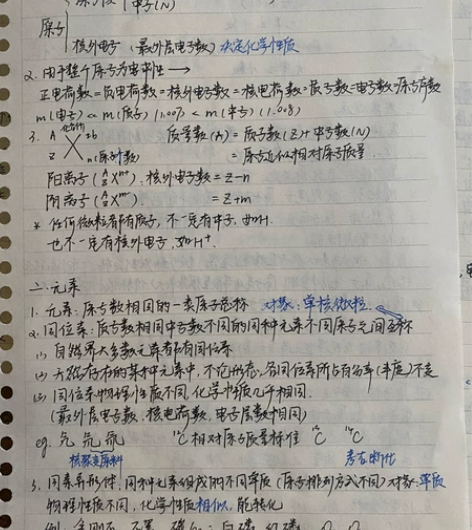 中子(N)
原子
核外电子 (最外层电子数) 决定化学性质
2. 由于整个原子为电中性 →
正电荷数=负电荷数=核外电子数=核电荷数=质子数=电子数=原子序数
m(电子) << m(质子) (1.007) < m(中子) (1.008)
3. A 化合价 ±b 质量数(A) = 质子数(Z)+中子数(N)
X
Z n(原子个数) = 原子近似相对原子质量
阳离子 (A Z Xⁿ⁺). 核外电子数 = Z-n
阴离子 (A Z Xᵐ⁻) = Z+m
* 任何微粒都有质子, 不一定有中子. 如H
也不一定有核外电子. 如H⁺.
二. 元素
1. 元素: 质子数相同的一类原子总称 对象: 单核微粒
2. 同位素: 质子数相同中子数不同的同种元素不同原子之间互称
(1) 自然界大多数元素都有同位素
(2) 天然存在的某种元素中, 不论游离, 各同位素所占百分率(丰度)不变
(3) 同位素物理性质不同, 化学性质几乎相同.
(最外层电子数. 核电荷数. 电子层数相同)
eg. 氕 氘 氚 ¹²C相对原子质量标准 ¹³C ¹⁴C
核聚变原料 考古断代
3. 同素异形体: 同种元素组成的不同单质 (原子排列方式不同) 对象: 单质
物理性质不同, 化学性质相似, 能转化
例: 金刚石 石墨 白磷 红磷